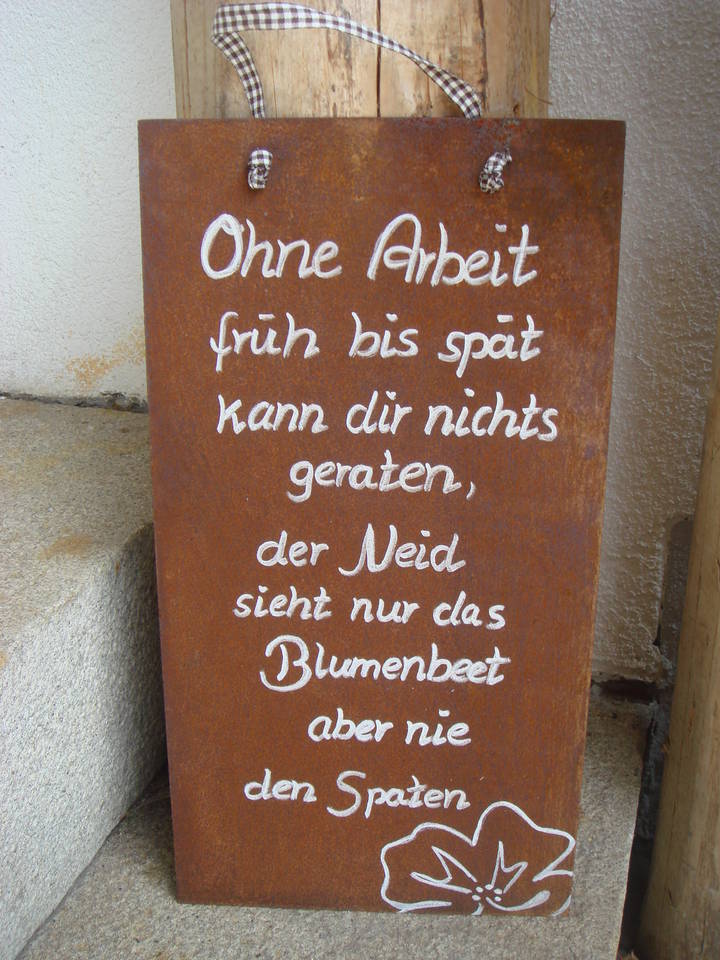 Ohne Arbeit
früh bis spät
kann dir nichts
geraten,
der Neid
sieht nur das
Blumenbeet
aber nie
den Spaten